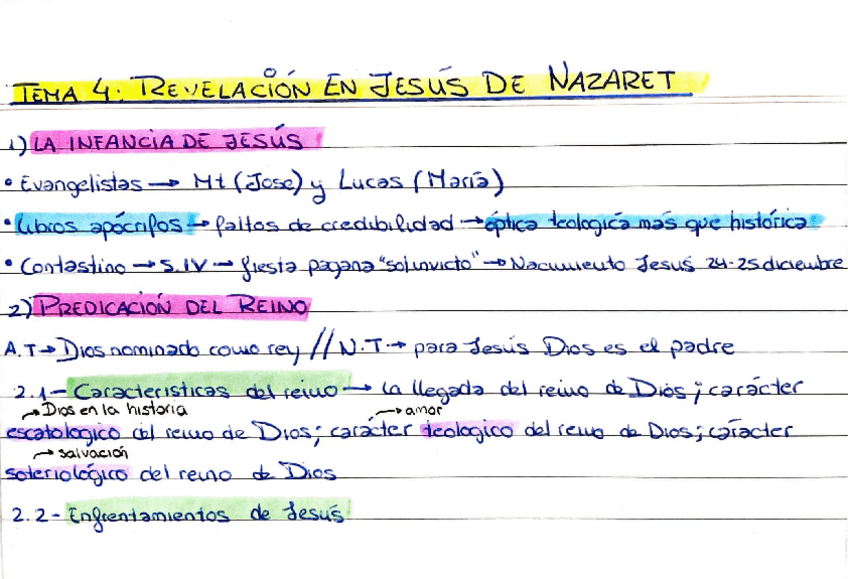 TEMA 4: REVELACIÓN EN JESÚS DE NAZARET
1) LA INFANCIA DE JESÚS
• Evangelistas → Mt (Jose) y Lucas (María)
• Libros apócrifos → faltos de credibilidad → óptica teologica más que histórica
• Contastino → S.IV → fiesta pagana "sol invicto" → Nacimiento Jesús 24-25 diciembre
2) PREDICACIÓN DEL REINO
A.T → Dios nominado como rey // N.T → para Jesús Dios es el padre
2.1- Características del reino → la llegada del reino de Dios; carácter
→ Dios en la historia → amor
escatologico del reino de Dios; carácter teologico del reino de Dios; carácter
→ salvación
soteriológico del reino de Dios
2.2- Enfrentamientos de Jesús